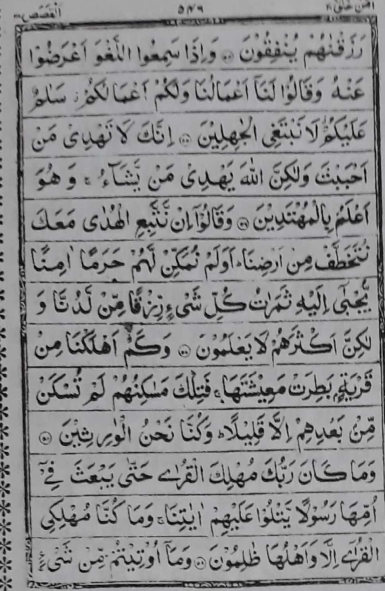 امن خلق ۲۰ ۵۴۶ القصص ۲۸
رَزَقْنٰهُمْ يُنْفِقُوْنَ وَاِذَا سَمِعُوا اللَّغْوَ اَعْرَضُوْا
عَنْهُ وَقَالُوْا لَنَآ اَعْمَالُنَا وَلَكُمْ اَعْمَالُكُمْ سَلٰمٌ
عَلَيْكُمْ لَا نَبْتَغِى الْجٰهِلِيْنَ اِنَّكَ لَا تَهْدِىْ مَنْ
اَحْبَبْتَ وَلٰكِنَّ اللهَ يَهْدِىْ مَنْ يَّشَآءُ وَهُوَ
اَعْلَمُ بِالْمُهْتَدِيْنَ وَقَالُوْٓا اِنْ نَّتَّبِعِ الْهُدٰى مَعَكَ
نُتَخَطَّفْ مِنْ اَرْضِنَا اَوَلَمْ نُمَكِّنْ لَّهُمْ حَرَمًا اٰمِنًا
يُّجْبٰٓى اِلَيْهِ ثَمَرٰتُ كُلِّ شَىْءٍ رِّزْقًا مِّنْ لَّدُنَّا وَ
لٰكِنَّ اَكْثَرَهُمْ لَا يَعْلَمُوْنَ وَكَمْ اَهْلَكْنَا مِنْ
قَرْيَةٍ بَطِرَتْ مَعِيْشَتَهَا فَتِلْكَ مَسٰكِنُهُمْ لَمْ تُسْكَنْ
مِّنْ بَعْدِهِمْ اِلَّا قَلِيْلًا وَكُنَّا نَحْنُ الْوٰرِثِيْنَ
وَمَا كَانَ رَبُّكَ مُهْلِكَ الْقُرٰى حَتّٰى يَبْعَثَ فِىْٓ
اُمِّهَا رَسُوْلًا يَّتْلُوْا عَلَيْهِمْ اٰيٰتِنَا وَمَا كُنَّا مُهْلِكِى
الْقُرٰٓى اِلَّا وَاَهْلُهَا ظٰلِمُوْنَ وَمَآ اُوْتِيْتُمْ مِّنْ شَىْءٍ